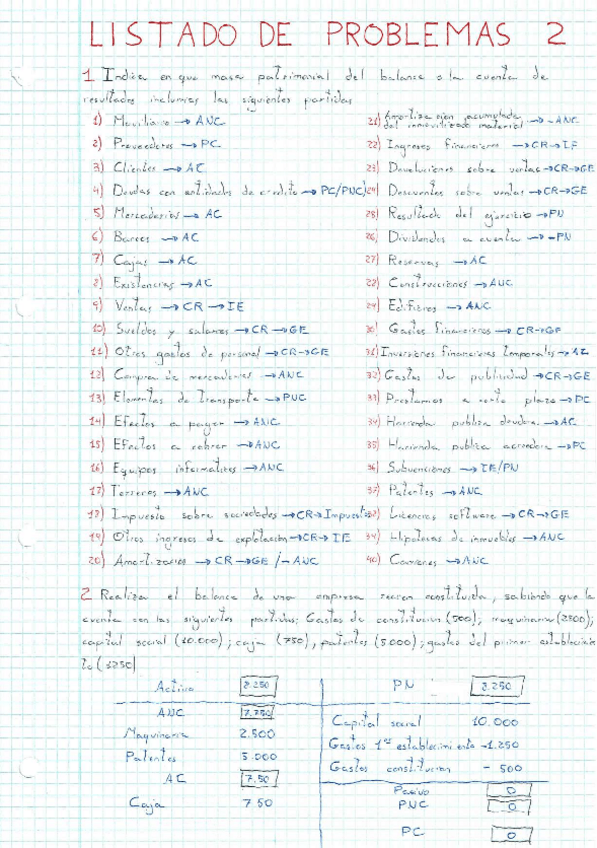 LISTADO DE PROBLEMAS 2
1. Indica en que masa patrimonial del balance o la cuenta de
resultados incluirias las siguientes partidas
1) Mobiliario → ANC
2) Proveedores → PC
3) Clientes → AC
4) Deudas con entidades de credito → PC/PNC
5) Mercaderias → AC
6) Bancos → AC
7) Cajas → AC
8) Existencias → AC
9) Ventas → CR → IE
10) Sueldos y salarios → CR → GE
11) Otros gastos de personal → CR → GE
12) Compra de mercaderias → ANC
13) Elementos de Transporte → PNC
14) Efectos a pagar → ANC
15) Efectos a cobrar → ANC
16) Equipos informaticos → ANC
17) Terrenos → ANC
18) Impuesto sobre sociedades → CR → Impuesto
19) Otros ingresos de explotación → CR → IE
20) Amortizacion → CR → GE / - ANC
21) Amortizacion acumulada
del inmovilizado material → - ANC
22) Ingresos financieros → CR → IF
23) Devoluciones sobre ventas → CR → GE
24) Descuentos sobre ventas → CR → GE
25) Resultado del ejercicio → PN
26) Dividendos a cuenta → -PN
27) Reservas → AC
28) Construcciones → ANC
29) Edificios → ANC
30) Gastos financieros → CR → GF
31) Inversiones financieras temporales → AC
32) Gastos de publicidad → CR → GE
33) Prestamos a corto plazo → PC
34) Hacienda publica deudora → AC
35) Hacienda publica acreedora → PC
36) Subvenciones → IE/PN
37) Patentes → ANC
38) Licencias software → CR → GE
39) Hipotecas de inmuebles → ANC
40) Camiones → ANC
2. Realiza el balance de una empresa recien constituida, sabiendo que la
cuenta con las siguientes partidas: Gastos de constitucion (500); maquinaria (2500);
capital social (10.000); caja (750), patentes (5.000); gastos del primer establecimien
to (1250)
Activo 8.250
ANC 7.750
Maquinaria 2.500
Patentes 5.000
AC 7.50
Caja 7 50
PN 8.250
Capital social 10.000
Gastos 1er establecimiento -1.250
Gastos constitucion - 500
Pasivo 0
PNC 0
PC 0